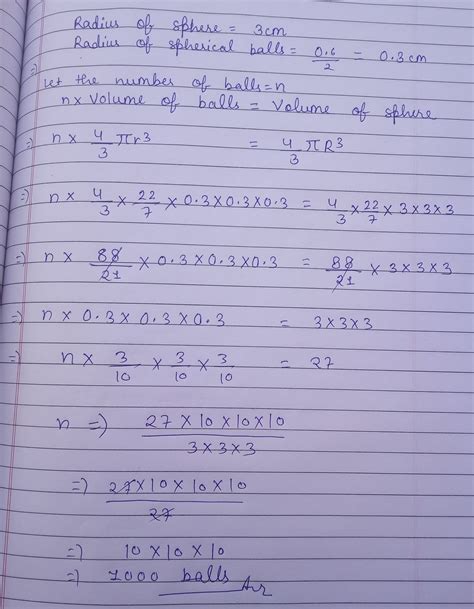 Radius of sphere = 3cm
Radius of spherical balls = 0.6/2 = 0.3cm
=) Let the number of balls = n
n × Volume of balls = Volume of sphere
=) n × 4/3 πr³ = 4/3 πR³
=) n × 4/3 × 22/7 × 0.3×0.3×0.3 = 4/3 × 22/7 × 3×3×3
=) n × 88/21 × 0.3×0.3×0.3 = 88/21 × 3×3×3
=) n × 0.3 × 0.3 × 0.3 = 3×3×3
=) n × 3/10 × 3/10 × 3/10 = 27
n =) 27 × 10 × 10 × 10 / 3 × 3 × 3
=) 27 × 10 × 10 × 10 / 27
=) 10 × 10 × 10
=) 1000 balls Ans